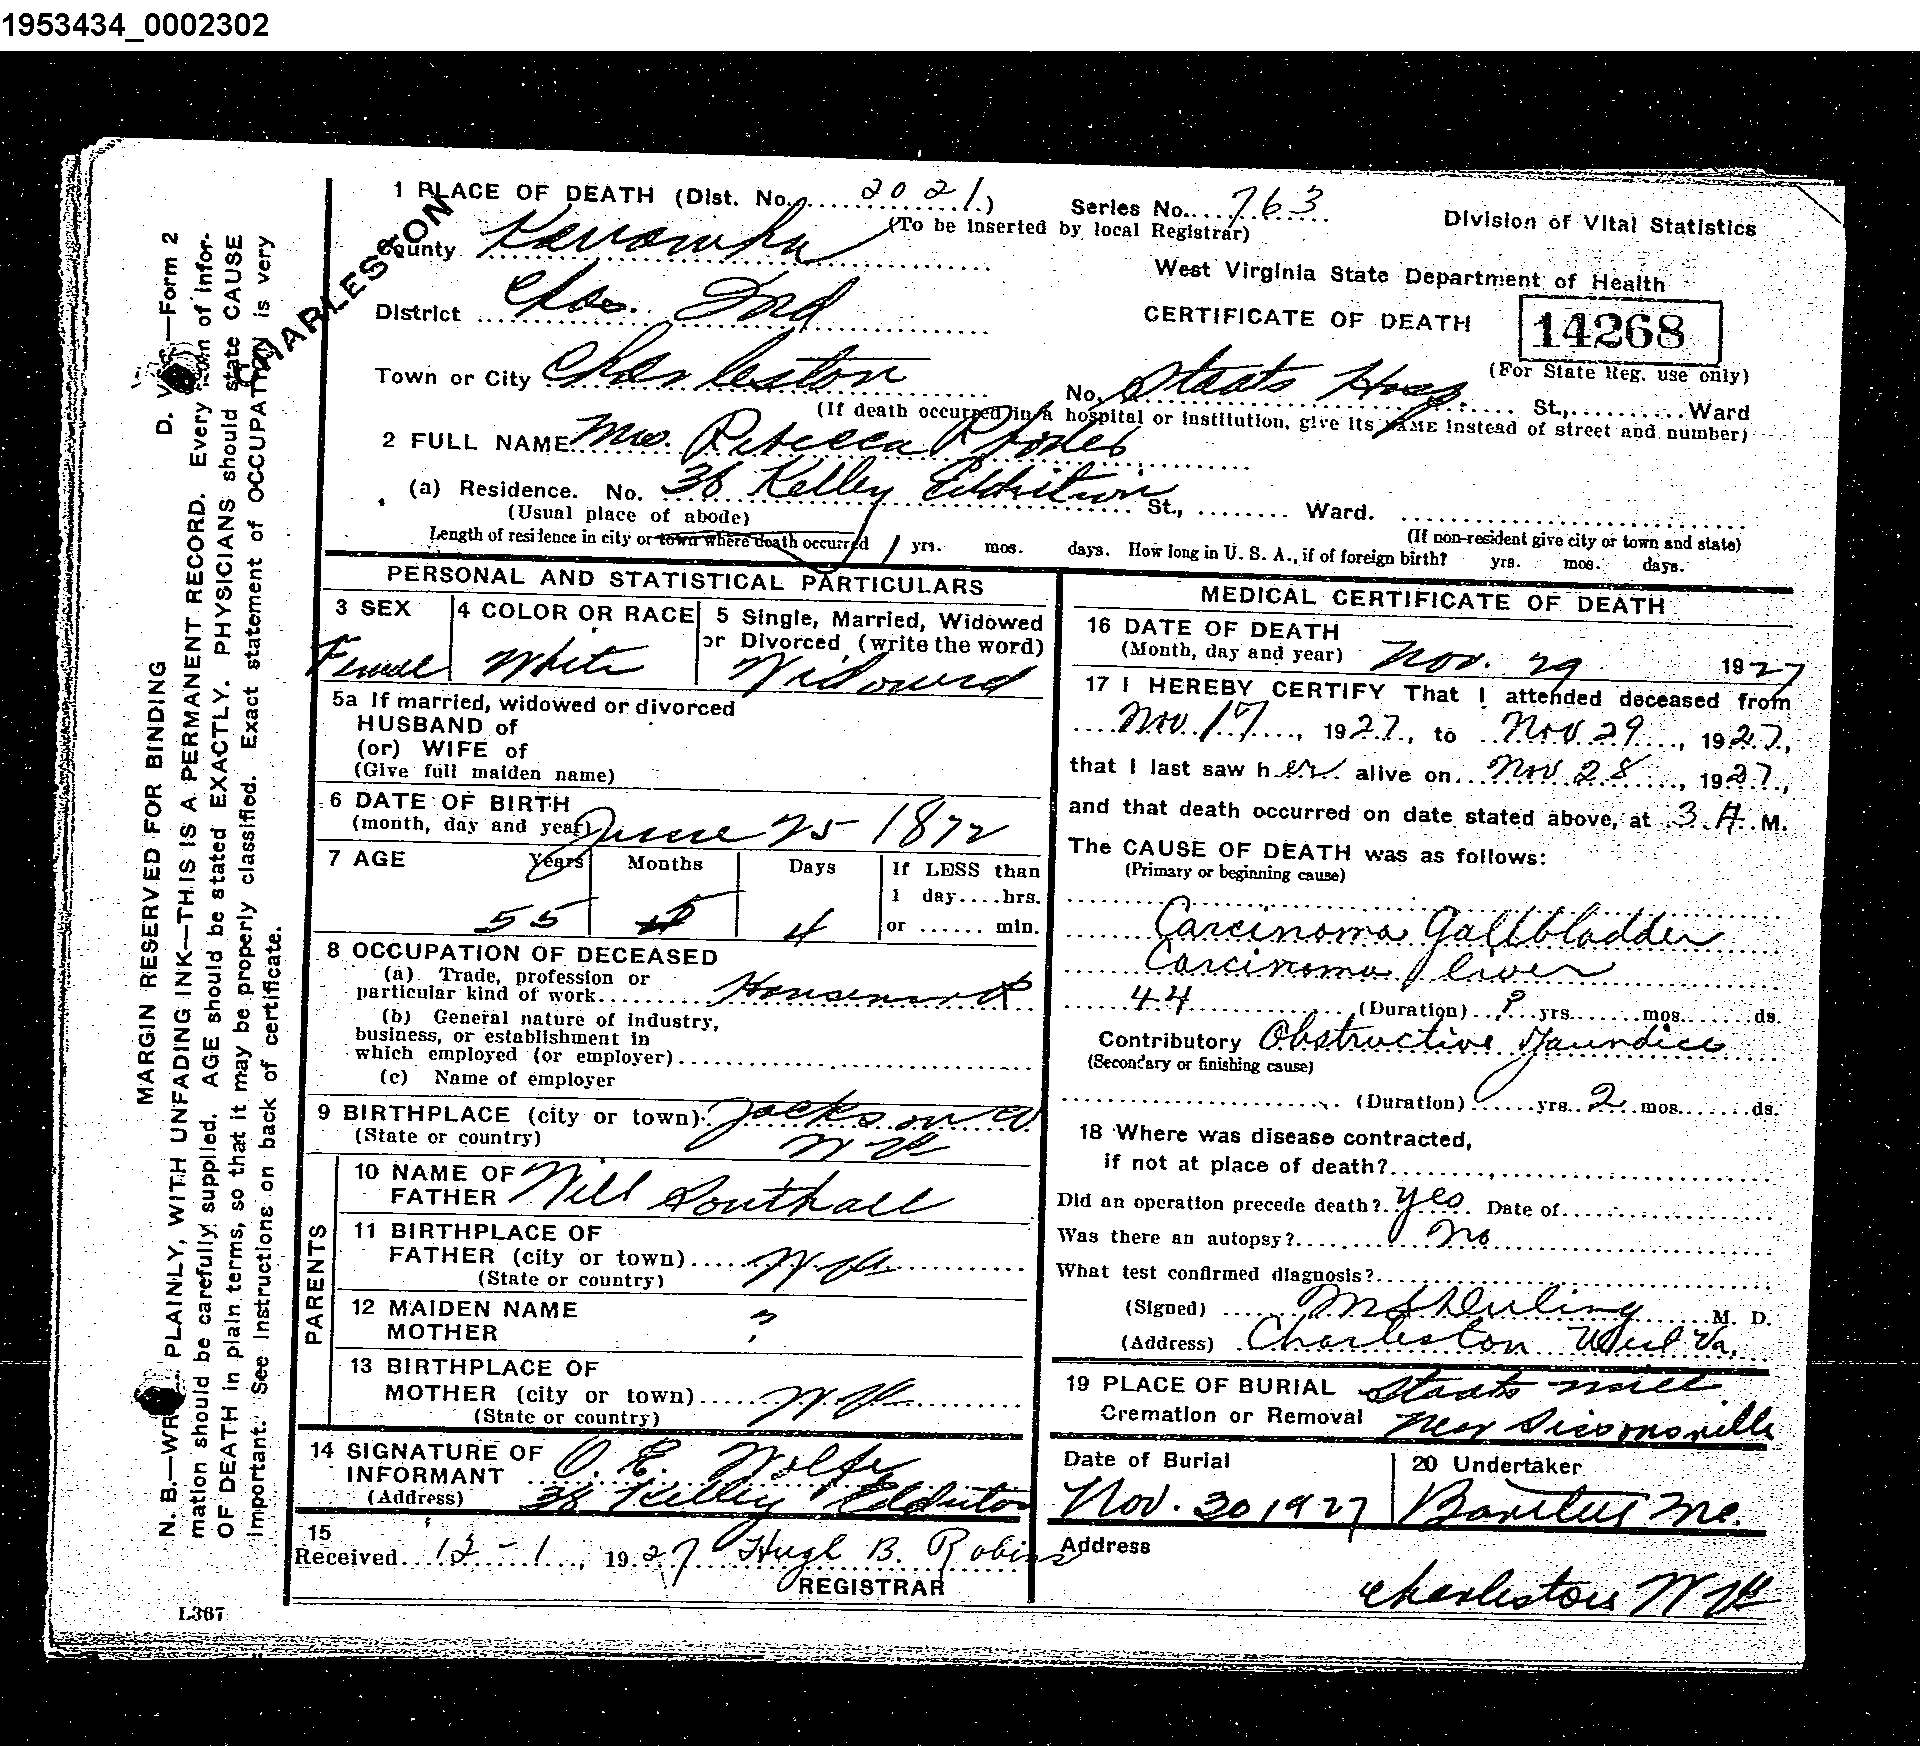 1953434_0002302
1 PLACE OF DEATH (Dist. No. 2021) Series No. 763
(To be inserted by local Registrar)
Division of Vital Statistics
County Kanawha
CHARLESTON
West Virginia State Department of Health
District Chas. Ind
CERTIFICATE OF DEATH 14268
(For State Reg. use only)
Town or City Charleston No. Staats Hosp. St., Ward
(If death occurred in a hospital or institution, give its NAME instead of street and number)
2 FULL NAME Mrs. Rebecca Rhodes
(a) Residence. No. 38 Kelley Eddition St., Ward.
(Usual place of abode) (If non-resident give city or town and state)
Length of residence in city or town where death occurred 1 yrs. mos. days. How long in U. S. A., if of foreign birth? yrs. mos. days.
PERSONAL AND STATISTICAL PARTICULARS
3 SEX 4 COLOR OR RACE 5 Single, Married, Widowed
or Divorced (write the word)
Female White Widowed
5a If married, widowed or divorced
HUSBAND of
(or) WIFE of
(Give full maiden name)
6 DATE OF BIRTH
(month, day and year) June 25 1872
7 AGE Years Months Days If LESS than
1 day....hrs.
55 5 4 or ...... min.
8 OCCUPATION OF DECEASED
(a) Trade, profession or
particular kind of work Housework
(b) General nature of industry,
business, or establishment in
which employed (or employer)
(c) Name of employer
9 BIRTHPLACE (city or town) Jackson Co
(State or country) W Va
PARENTS
10 NAME OF
FATHER Will Southall
11 BIRTHPLACE OF
FATHER (city or town) W Va
(State or country)
12 MAIDEN NAME
MOTHER ?
13 BIRTHPLACE OF
MOTHER (city or town) W Va
(State or country)
14 SIGNATURE OF
INFORMANT O. E. Wolfe
(Address) 38 Kelley Eddition
15
Received 12-1, 1927 Hugh B. Robins
REGISTRAR
MEDICAL CERTIFICATE OF DEATH
16 DATE OF DEATH
(Month, day and year) Nov. 29 1927
17 I HEREBY CERTIFY That I attended deceased from
Nov 17, 1927, to Nov 29, 1927,
that I last saw her alive on Nov 28, 1927,
and that death occurred on date stated above, at 3 A M.
The CAUSE OF DEATH was as follows:
(Primary or beginning cause)
Carcinoma Gallbladder
Carcinoma liver
44 (Duration) ? yrs. mos. ds.
Contributory Obstructive Jaundice
(Secondary or finishing cause)
(Duration) yrs. 2 mos. ds.
18 Where was disease contracted,
if not at place of death?
Did an operation precede death? Yes Date of
Was there an autopsy? No
What test confirmed diagnosis?
(Signed) M. D.
(Address) Charleston West Va.
19 PLACE OF BURIAL Staats Mill
Cremation or Removal Near Sissonsville
Date of Burial 20 Undertaker
Nov. 30 1927
Address
Charleston W Va
MARGIN RESERVED FOR BINDING
D. V. S.—Form 2
N. B.—WRITE PLAINLY, WITH UNFADING INK—THIS IS A PERMANENT RECORD. Every item of infor-
mation should be carefully supplied. AGE should be stated EXACTLY. PHYSICIANS should state CAUSE
OF DEATH in plain terms, so that it may be properly classified. Exact statement of OCCUPATION is very
important. See instructions on back of certificate.
L367